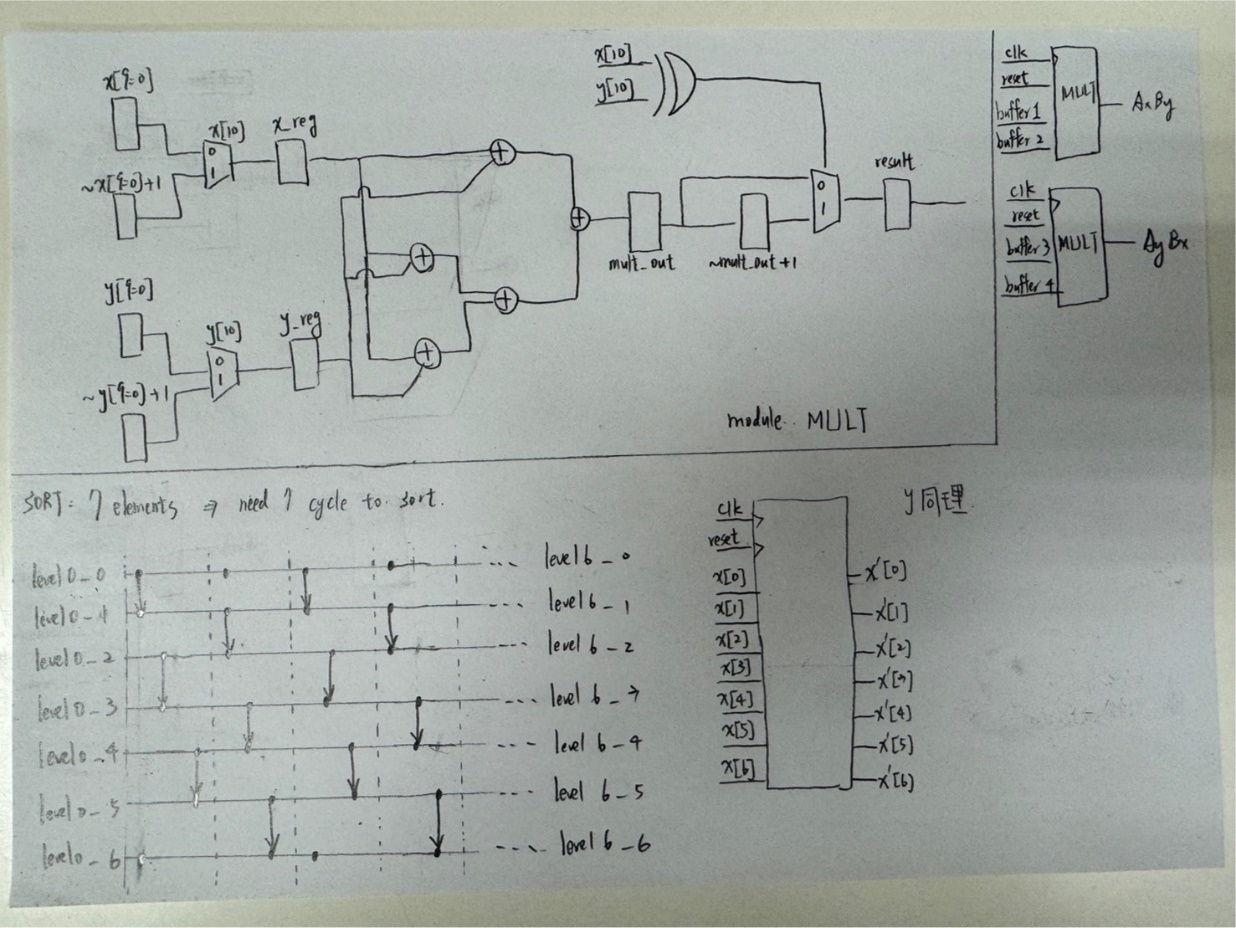 x[9:0]
x[10]
x_reg
0
1
~x[9:0]+1
y[9:0]
y[10]
y_reg
0
1
~y[9:0]+1
+
+
+
+
+
x[10]
y[10]
mult_out
~mult_out+1
0
1
result
module MULT
clk
reset
buffer 1
buffer 2
MULT
AxBy
clk
reset
buffer 3
buffer 4
MULT
AyBx
SORT: 7 elements ⇒ need 7 cycle to sort.
level 0_0 ... level 6_0
level 0_1 ... level 6_1
level 0_2 ... level 6_2
level 0_3 ... level 6_3
level 0_4 ... level 6_4
level 0_5 ... level 6_5
level 0_6 ... level 6_6
clk
reset
x[0]
x[1]
x[2]
x[3]
x[4]
x[5]
x[6]
x'[0]
x'[1]
x'[2]
x'[3]
x'[4]
x'[5]
x'[6]
y同理